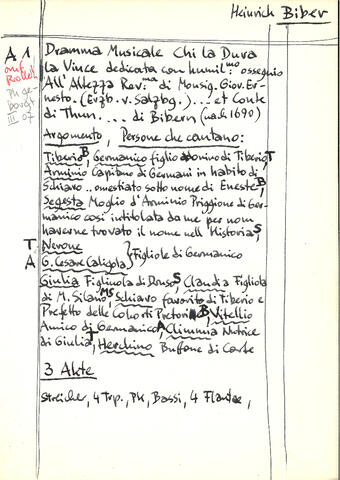 Heinrich Biber
A 1
auf
Rollei
Ph ge-
borgt
III 07
Dramma Musicale Chi la Dura
la Vince dedicata con humil:mo osseguio
All' Altezza Rev:ma di Monsig. Giov. Er-
nesto. (Erzb. v. Salzbg.) ... et Conte
di Thun. ... di Bibern (nach 1690)
Argomento, Persone che cantano:
Tiberio B, Germanico figlio adonino di Tiberio, T
Arminio Capitano di Germani in habito di
Schiavo .. omestiato sotto nome di Eneste, B
Segesta Moglio d'Arminio Priggione di Ger-
manico così intitolata da me per non
haverne trovato il nome nell Historia, S
T Nerone
A G. Cesare Caligola } Figliole di Germanico
Giulia Figlinola di Druso, S Claudia Figliola
di M. Silano, MS Schiavo favorito di Tiberio e
Prefetto delle Cohorti Pretorin, B Vitellio
Amico di Germanico, A Climmia Nutrice
di Giulia, T Herchino Buffone di Corte
3 Akte
Streicher, 4 Trp., Pk, Bassi, 4